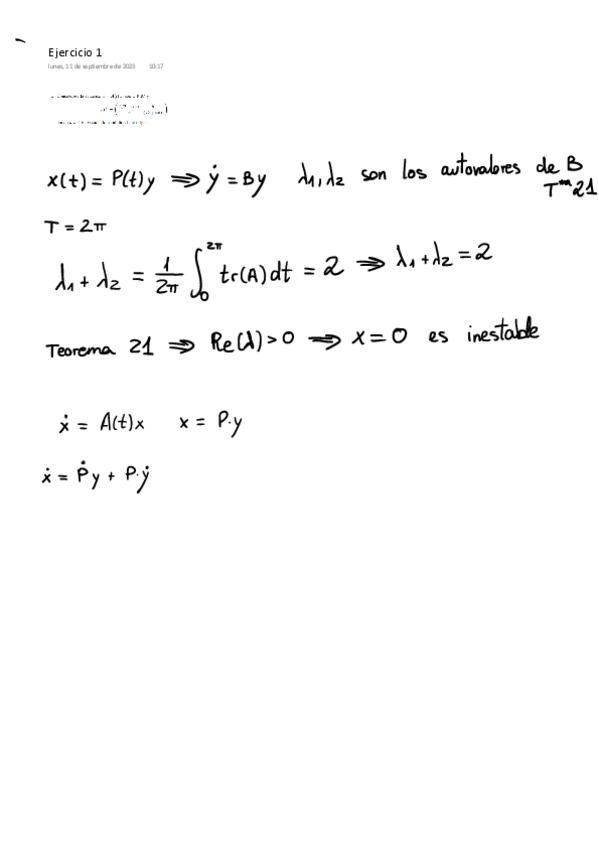 Ejercicio 1
lunes, 11 de septiembre de 2023 10:17
x(t) = P(t)y ⟹ ẏ = By λ₁, λ₂ son los autovalores de B
Tᵐᵃ 21
T = 2π
λ₁ + λ₂ = 1/2π ∫₀^2π tr(A)dt = 2 ⟹ λ₁ + λ₂ = 2
Teorema 21 ⟹ Re(λ) > 0 ⟹ x = 0 es inestable
ẋ = A(t)x x = P·y
ẋ = Ṗy + P·ẏ